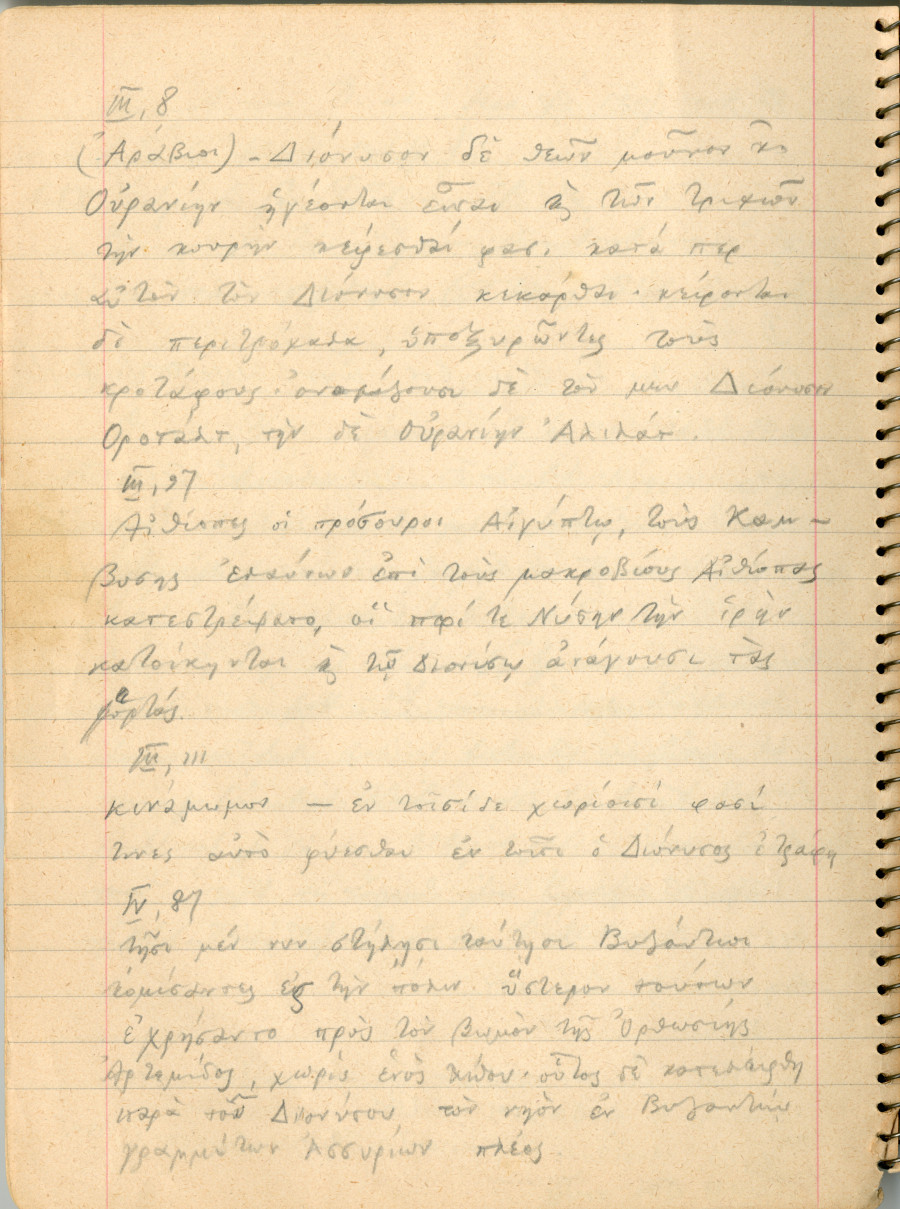 III, 8
(Ἀράβιοι) – Διόνυσον δὲ θεῶν μοῦνον καὶ
Οὐρανίην ἡγέονται εἶναι καὶ τῶν τριχῶν
τὴν κουρὴν κείρεσθαί φασι κατά περ
αὐτὸν τὸν Διόνυσον κεκάρθαι· κείρονται
δὲ περιτρόχαλα, ὑποξυρῶντες τοὺς
κροτάφους· ὀνομάζουσι δὲ τὸν μὲν Διόνυσον
Οροτάλτ, τὴν δὲ Οὐρανίην Ἀλιλάτ.
III, 97
Αἰθίοπες οἱ πρόσουροι Αἰγύπτῳ, τοὺς Καμ–
βυσης ἐλαύνων ἐπὶ τοὺς μακροβίους Αἰθίοπας
κατεστρέψατο, οἳ περί τε Νύσην τὴν ἱρὴν
κατοίκηνται καὶ τῷ Διονύσῳ ἀνάγουσι τὰς
ὁρτάς.
III, 111
κινάμωμον — ἐν τοῖσίδε χωρίοισί φασί
τινες αὐτὸ φύεσθαι ἐν τοῖσι ὁ Διόνυσος ἐτράφη
IV, 87
τῇσι μέν νυν στήλῃσι ταύτῃσι Βυζάντιοι
κομίσαντες ἐς τὴν πόλιν ὕστερον τούτων
ἐχρήσαντο πρὸς τὸν βωμὸν τῆς Ὀρθωσίης
Ἀρτέμιδος, χωρὶς ἑνὸς λίθου· οὗτος δὲ κατελείφθη
παρὰ τοῦ Διονύσου τὸν νηὸν ἐν Βυζαντίῳ
γραμμάτων Ἀσσυρίων πλέος